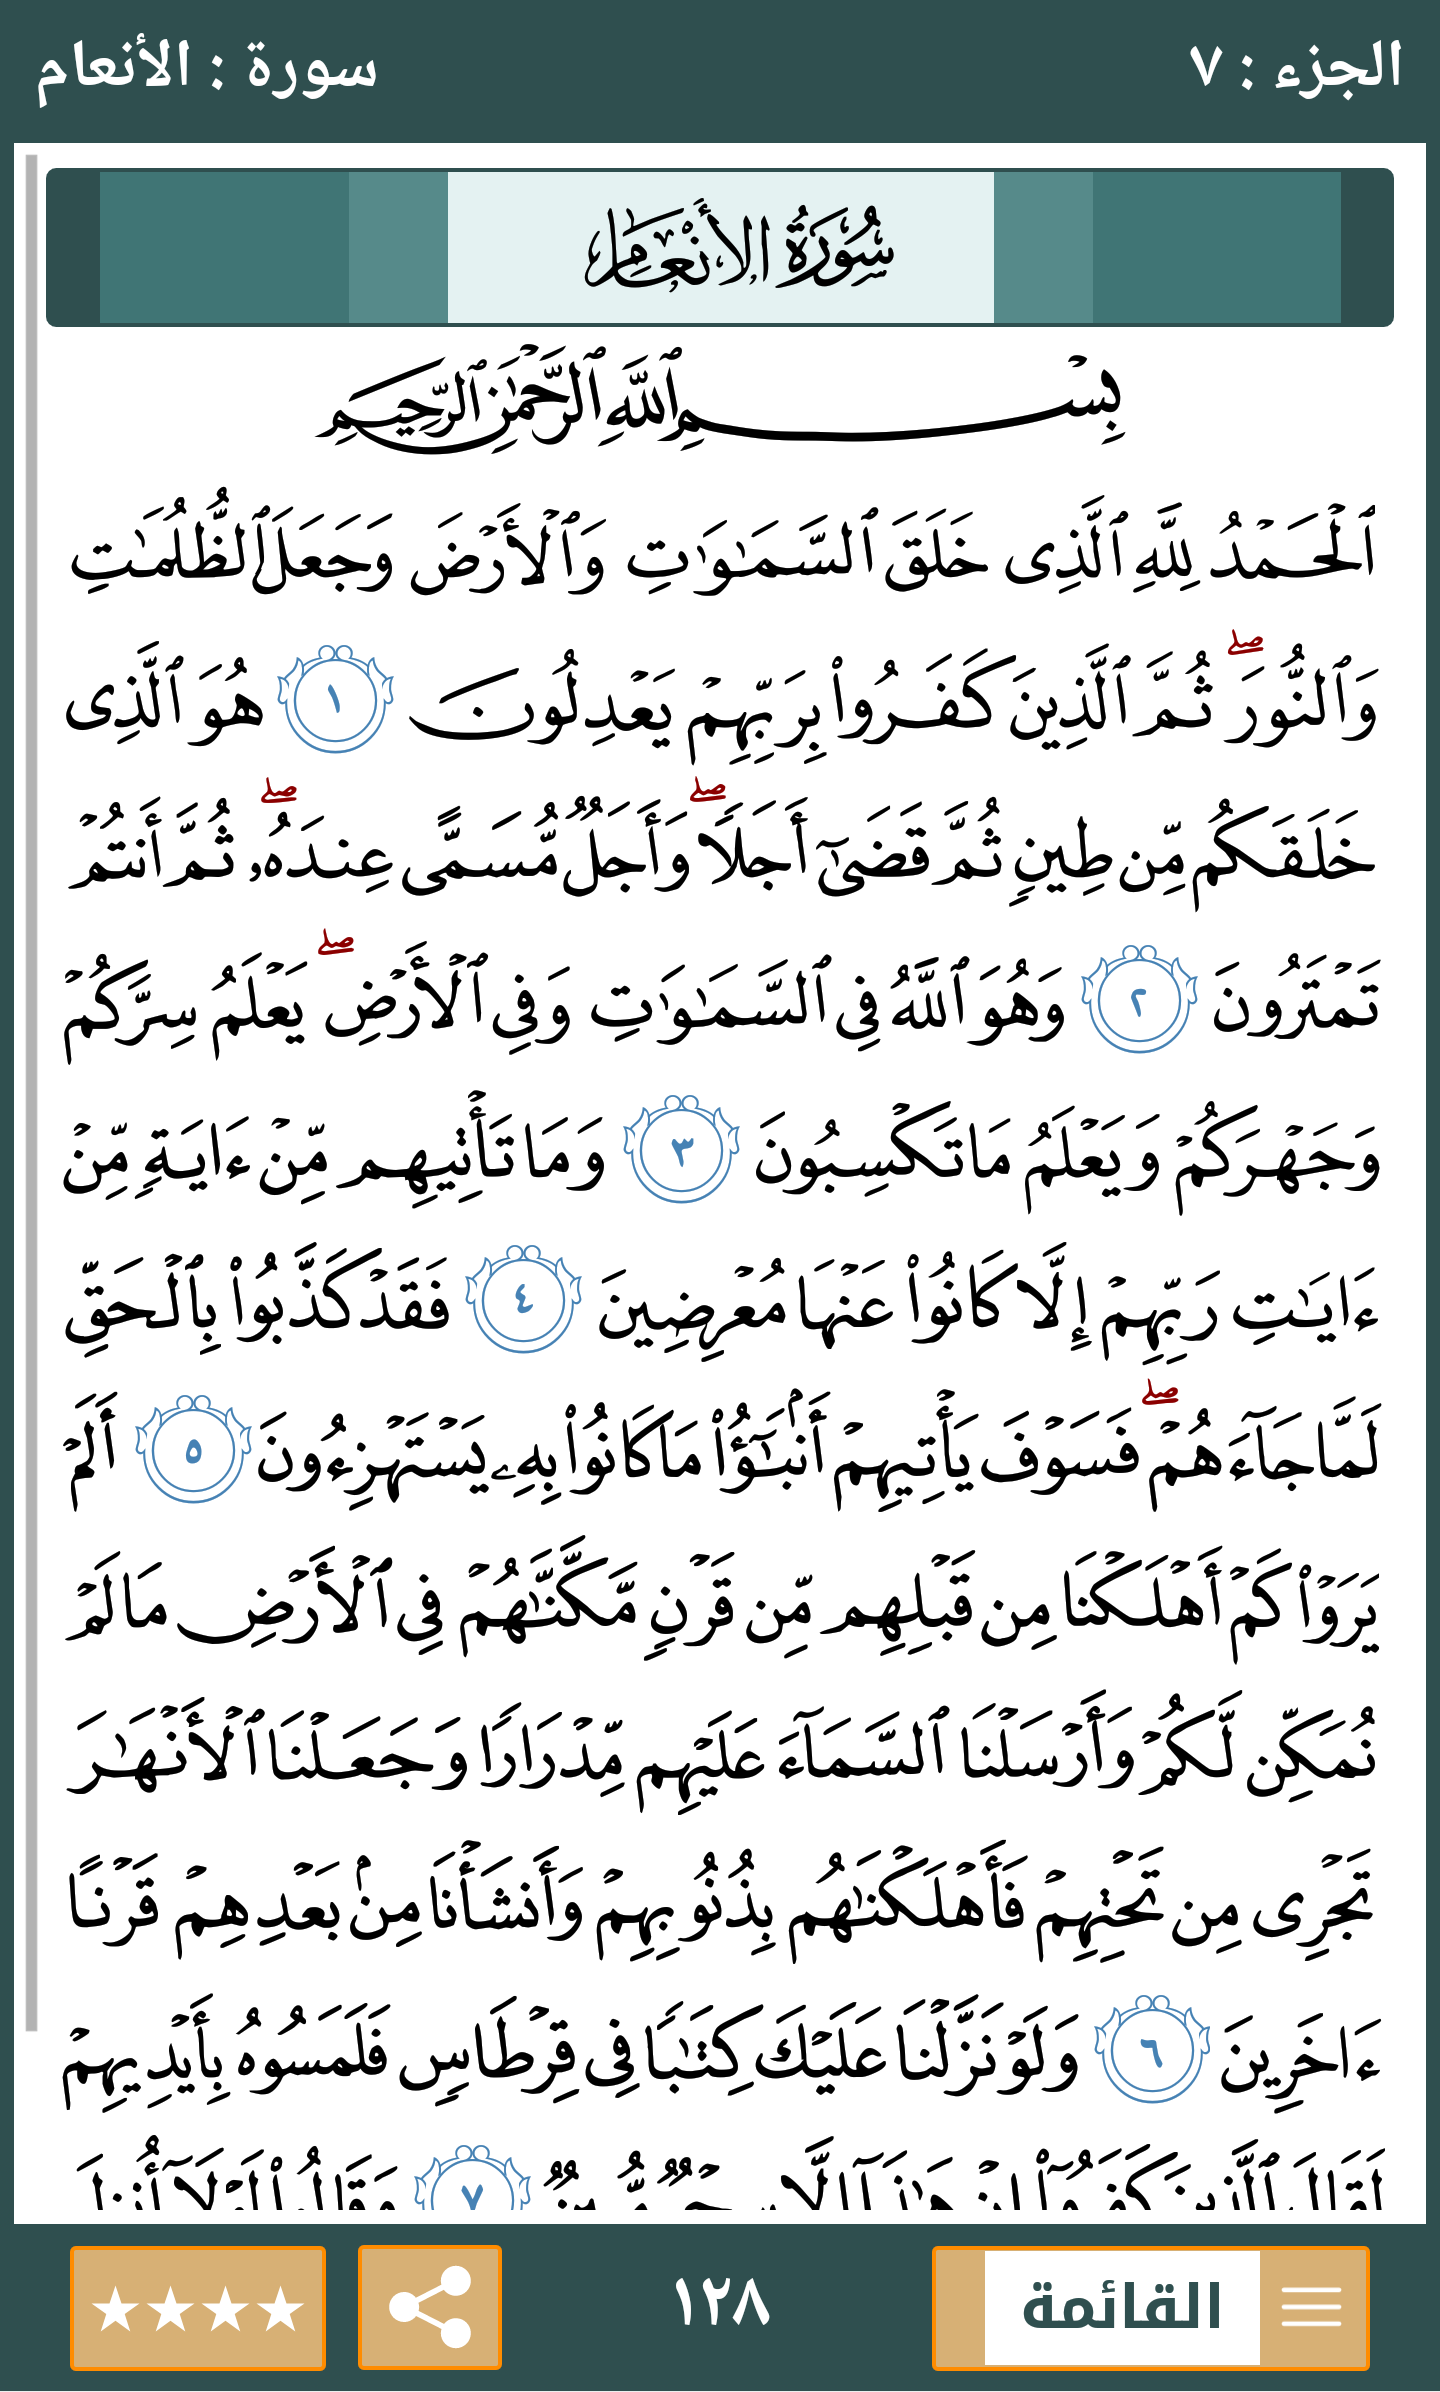 الجزء : ٧
سورة : الأنعام
سُورَةُ الأَنْعَامِ
بِسْمِ ٱللَّهِ ٱلرَّحْمَٰنِ ٱلرَّحِيمِ
ٱلْحَمْدُ لِلَّهِ ٱلَّذِى خَلَقَ ٱلسَّمَٰوَٰتِ وَٱلْأَرْضَ وَجَعَلَ ٱلظُّلُمَٰتِ
وَٱلنُّورَ ۖ ثُمَّ ٱلَّذِينَ كَفَرُوا۟ بِرَبِّهِمْ يَعْدِلُونَ ١ هُوَ ٱلَّذِى
خَلَقَكُم مِّن طِينٍ ثُمَّ قَضَىٰٓ أَجَلًا ۖ وَأَجَلٌ مُّسَمًّى عِندَهُۥ ۖ ثُمَّ أَنتُمْ
تَمْتَرُونَ ٢ وَهُوَ ٱللَّهُ فِى ٱلسَّمَٰوَٰتِ وَفِى ٱلْأَرْضِ ۖ يَعْلَمُ سِرَّكُمْ
وَجَهْرَكُمْ وَيَعْلَمُ مَا تَكْسِبُونَ ٣ وَمَا تَأْتِيهِم مِّنْ ءَايَةٍ مِّنْ
ءَايَٰتِ رَبِّهِمْ إِلَّا كَانُوا۟ عَنْهَا مُعْرِضِينَ ٤ فَقَدْ كَذَّبُوا۟ بِٱلْحَقِّ
لَمَّا جَآءَهُمْ ۖ فَسَوْفَ يَأْتِيهِمْ أَنۢبَٰٓؤُا۟ مَا كَانُوا۟ بِهِۦ يَسْتَهْزِءُونَ ٥ أَلَمْ
يَرَوْا۟ كَمْ أَهْلَكْنَا مِن قَبْلِهِم مِّن قَرْنٍ مَّكَّنَّٰهُمْ فِى ٱلْأَرْضِ مَا لَمْ
نُمَكِّن لَّكُمْ وَأَرْسَلْنَا ٱلسَّمَآءَ عَلَيْهِم مِّدْرَارًا وَجَعَلْنَا ٱلْأَنْهَٰرَ
تَجْرِى مِن تَحْتِهِمْ فَأَهْلَكْنَٰهُم بِذُنُوبِهِمْ وَأَنشَأْنَا مِنۢ بَعْدِهِمْ قَرْنًا
ءَاخَرِينَ ٦ وَلَوْ نَزَّلْنَا عَلَيْكَ كِتَٰبًا فِى قِرْطَاسٍ فَلَمَسُوهُ بِأَيْدِيهِمْ
لَقَالَ ٱلَّذِينَ كَفَرُوٓا۟ إِنْ هَٰذَآ إِلَّا سِحْرٌ مُّبِينٌ ٧ وَقَالُوا۟ لَوْلَآ أُنزِلَ
القائمة
١٢٨